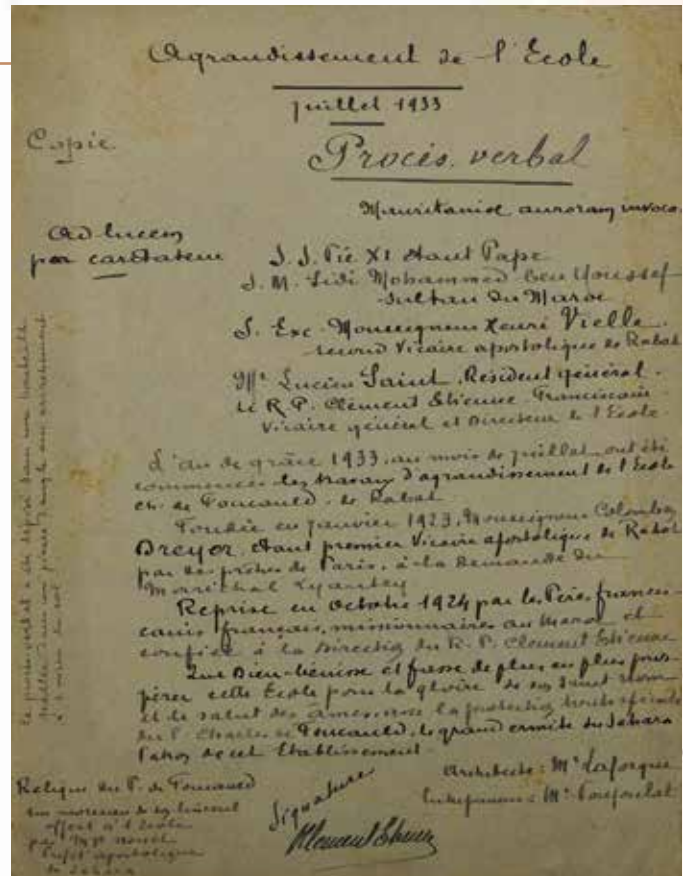 Agrandissement de l'Ecole
juillet 1933
Copie
Procès-verbal
Mauritaniae auroram invoco
Ad lucem
per caritatem
S. S. Pie XI étant Pape
S. M. Sidi Mohammed ben Youssef
Sultan du Maroc
S. Exc. Monseigneur Henri Vielle
second Vicaire apostolique de Rabat
Mr Lucien Saint, Résident général.
Le R. P. Clément Etienne Franciscain
Vicaire général et Directeur de l'Ecole.
L'an de grâce 1933, au mois de juillet, ont été
commencés les travaux d'agrandissement de l'Ecole
Ch. de Foucauld - de Rabat
Fondée en janvier 1923, Monseigneur Colomban
Dreyer, étant premier Vicaire apostolique de Rabat
par des prêtres de Paris, à la demande du
Maréchal Lyautey
Reprise en octobre 1924 par les Pères francis-
cains français, missionnaires au Maroc et
confiée à la Direction du R. P. Clément Etienne
Que Dieu bénisse et fasse de plus en plus pros-
pérer cette Ecole pour la gloire de son Saint nom
et le salut des âmes, sous la protection toute spéciale
du P. Charles de Foucauld, le grand ermite du Sahara
Patron de cet Etablissement.
Architecte : Mr Laforgue
Entrepreneur : Mr
Signature
Clément Etienne
Relique du P. de Foucauld
un morceau de son linceul
offert à l'Ecole
par Mgr Nouet
Préfet apostolique
du Sahara
Ce procès-verbal a été déposé dans une bouteille
dans une pierre d'angle
du sol